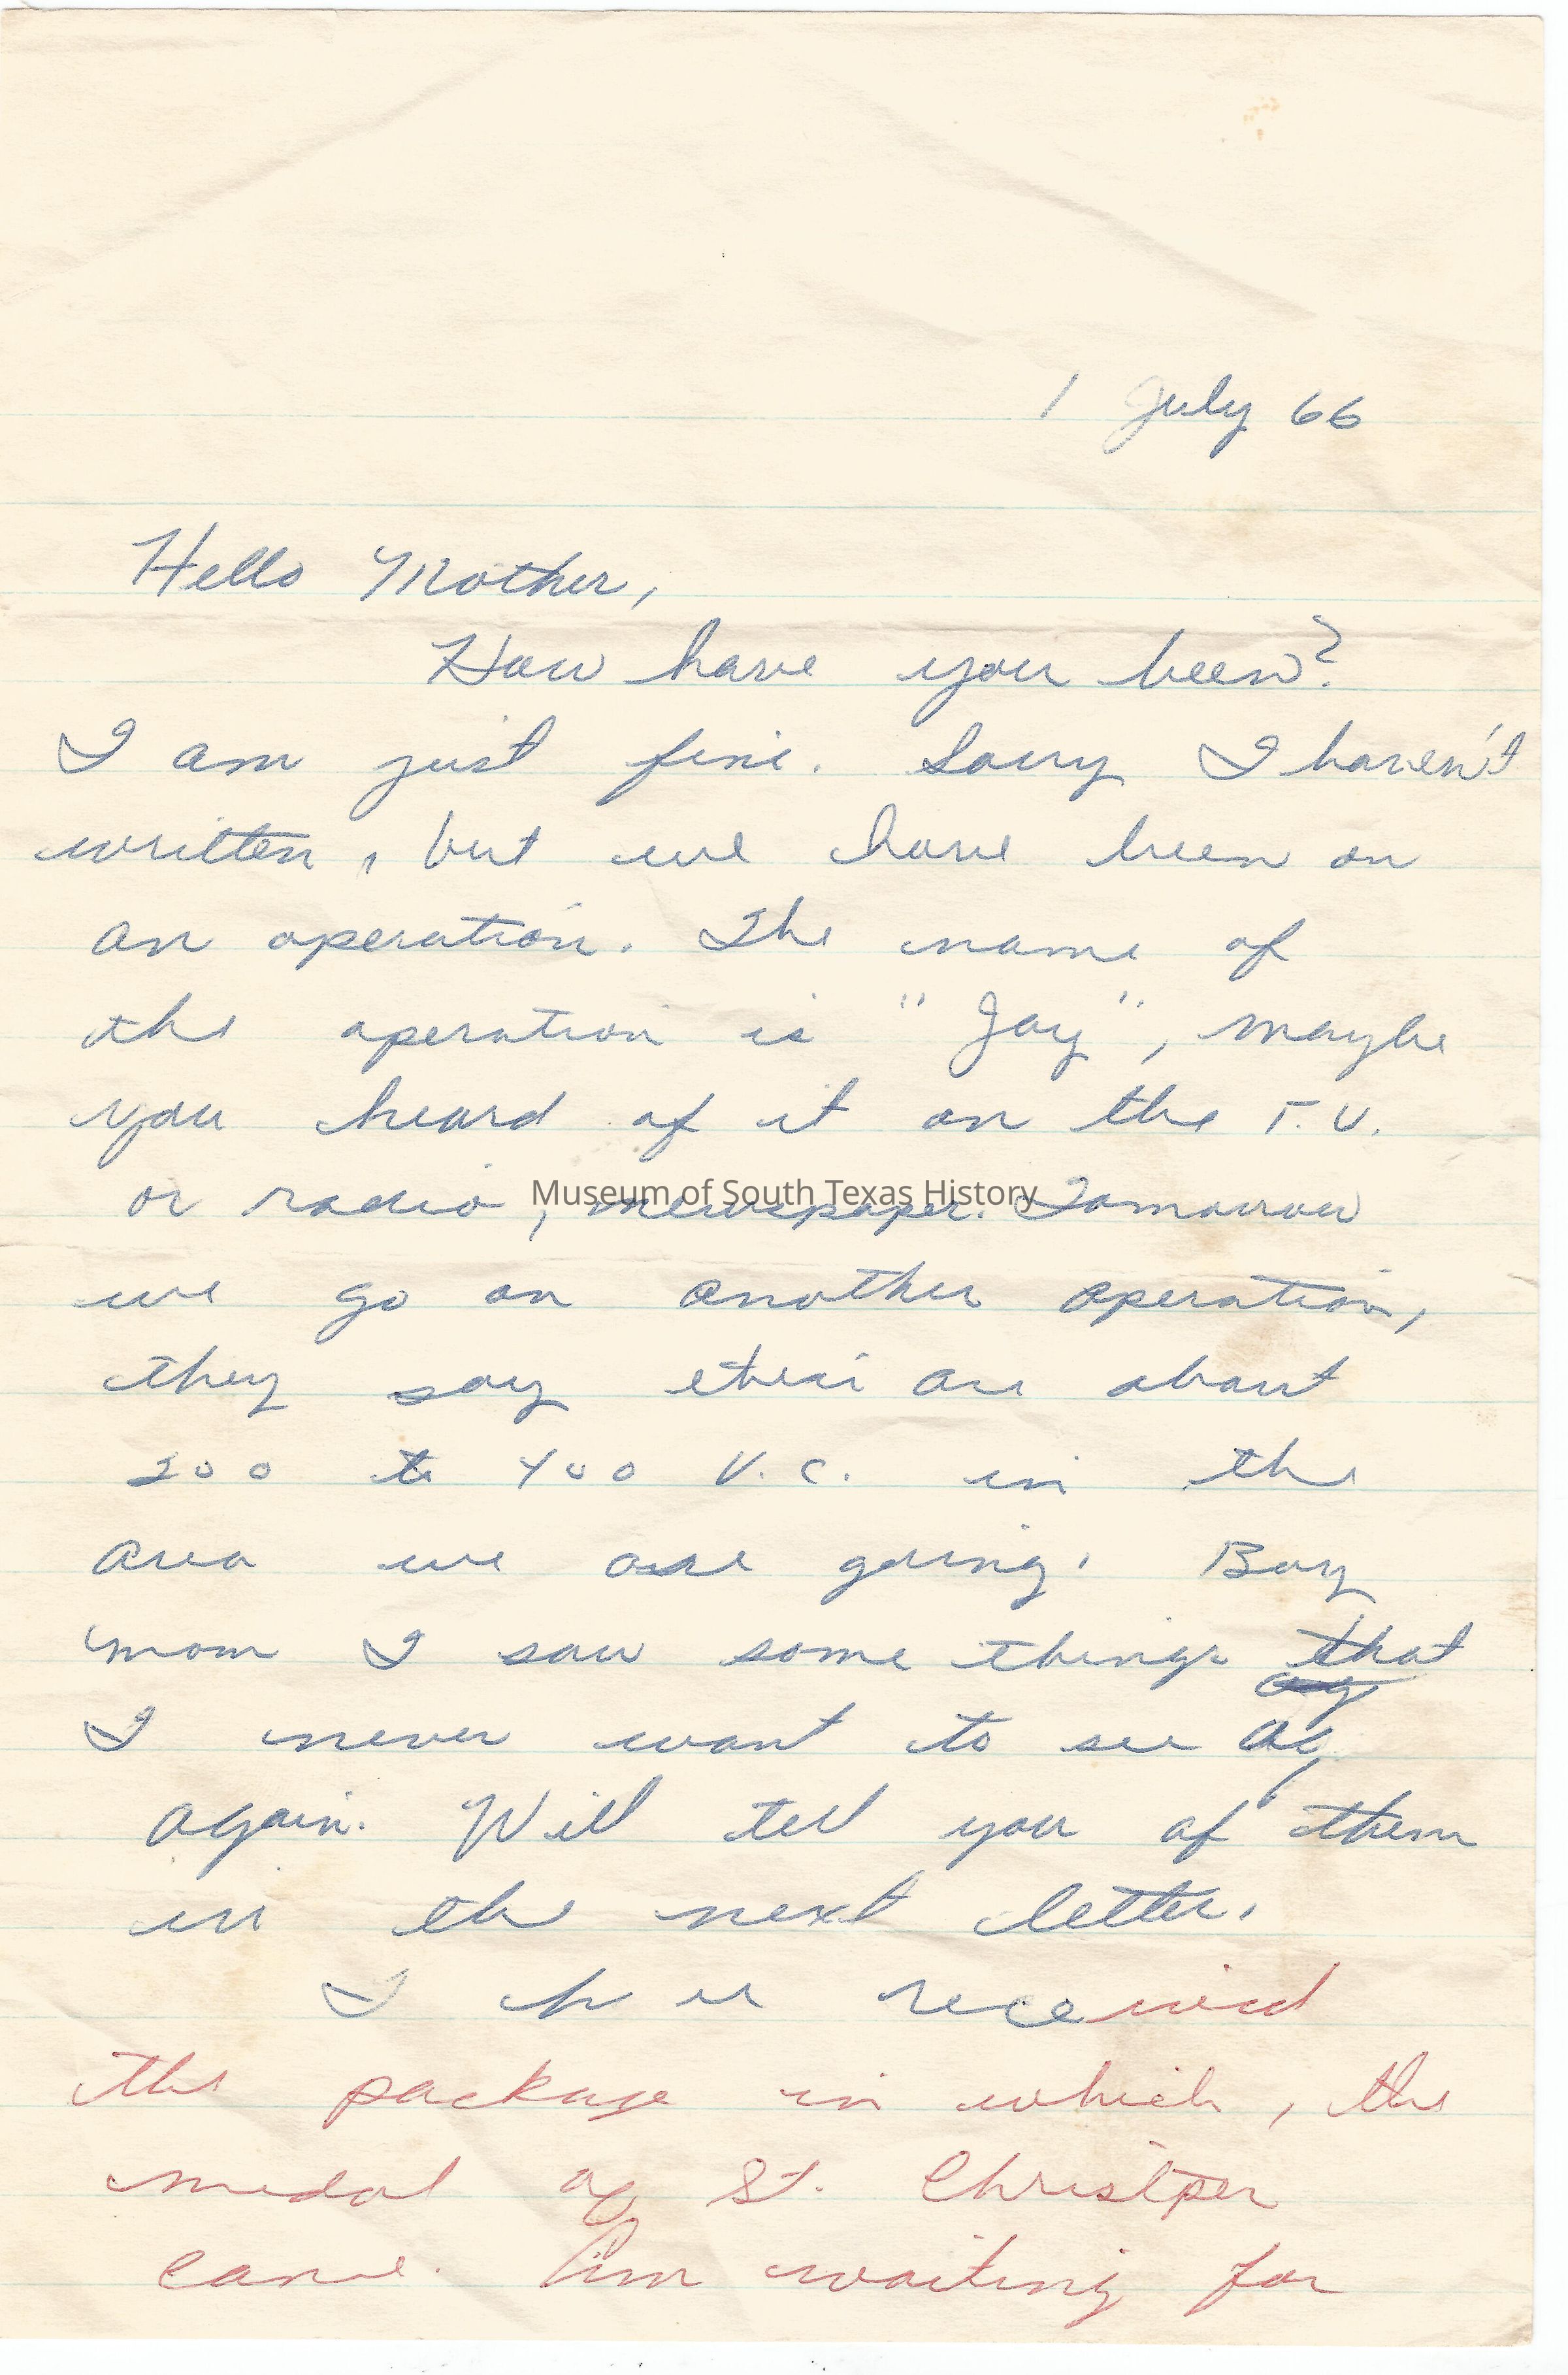 1 July 66
Hello Mother,
How have you been?
I am just fine. Sorry I haven't
written, but we have been on
an operation. The name of
the operation is "Jay", maybe
you heard of it on the T.V.
or radio, newspaper. Tomorrow
Museum of South Texas History
we go on another operation,
they say their are about
200 to 400 V.C. in the
area we are going. Boy
mom I saw some things that
I never want to see
again. Will tell you of them
in the next letter.
I received
the package in which, the
medal of St. Christper
came. Am waiting for